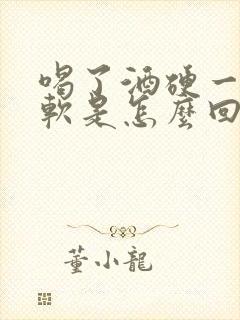 喝了酒硬一
軟是怎麼回
董小龍